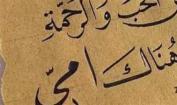 الحب والرحمة
هناك امي